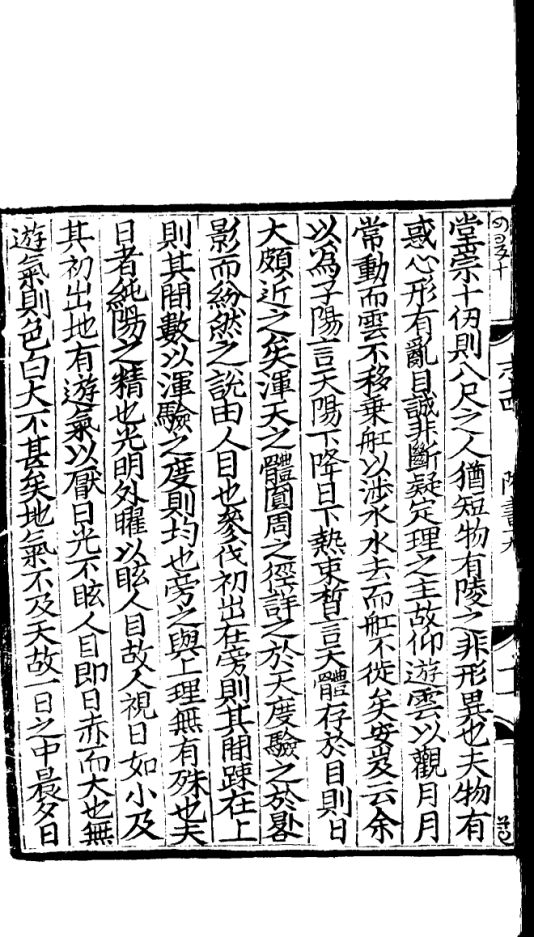 堂崇十仞則八尺之人猶短物有陵之非形異也夫物有
惑心形有亂目誠非斷疑定理之主故仰遊雲以觀月月
常動而雲不移乗舡以涉水水去而舡不徙矣安岌云余
以為子陽言天陽下降日下熱束晳言天體存於目則日
大頗近之矣渾天之體圓周之徑詳之於天度驗之於晷
影而紛然之說由人目也參伐初出在旁則其間踈在上
則其間數以渾驗之度則均也旁之與上理無有殊也夫
日者純陽之精也光明外曜以眩人目故人視日如小及
其初出地有遊氣以厭日光不眩人目即日赤而大也無
遊氣則色白大不甚矣地氣不及天故一日之中晨夕日